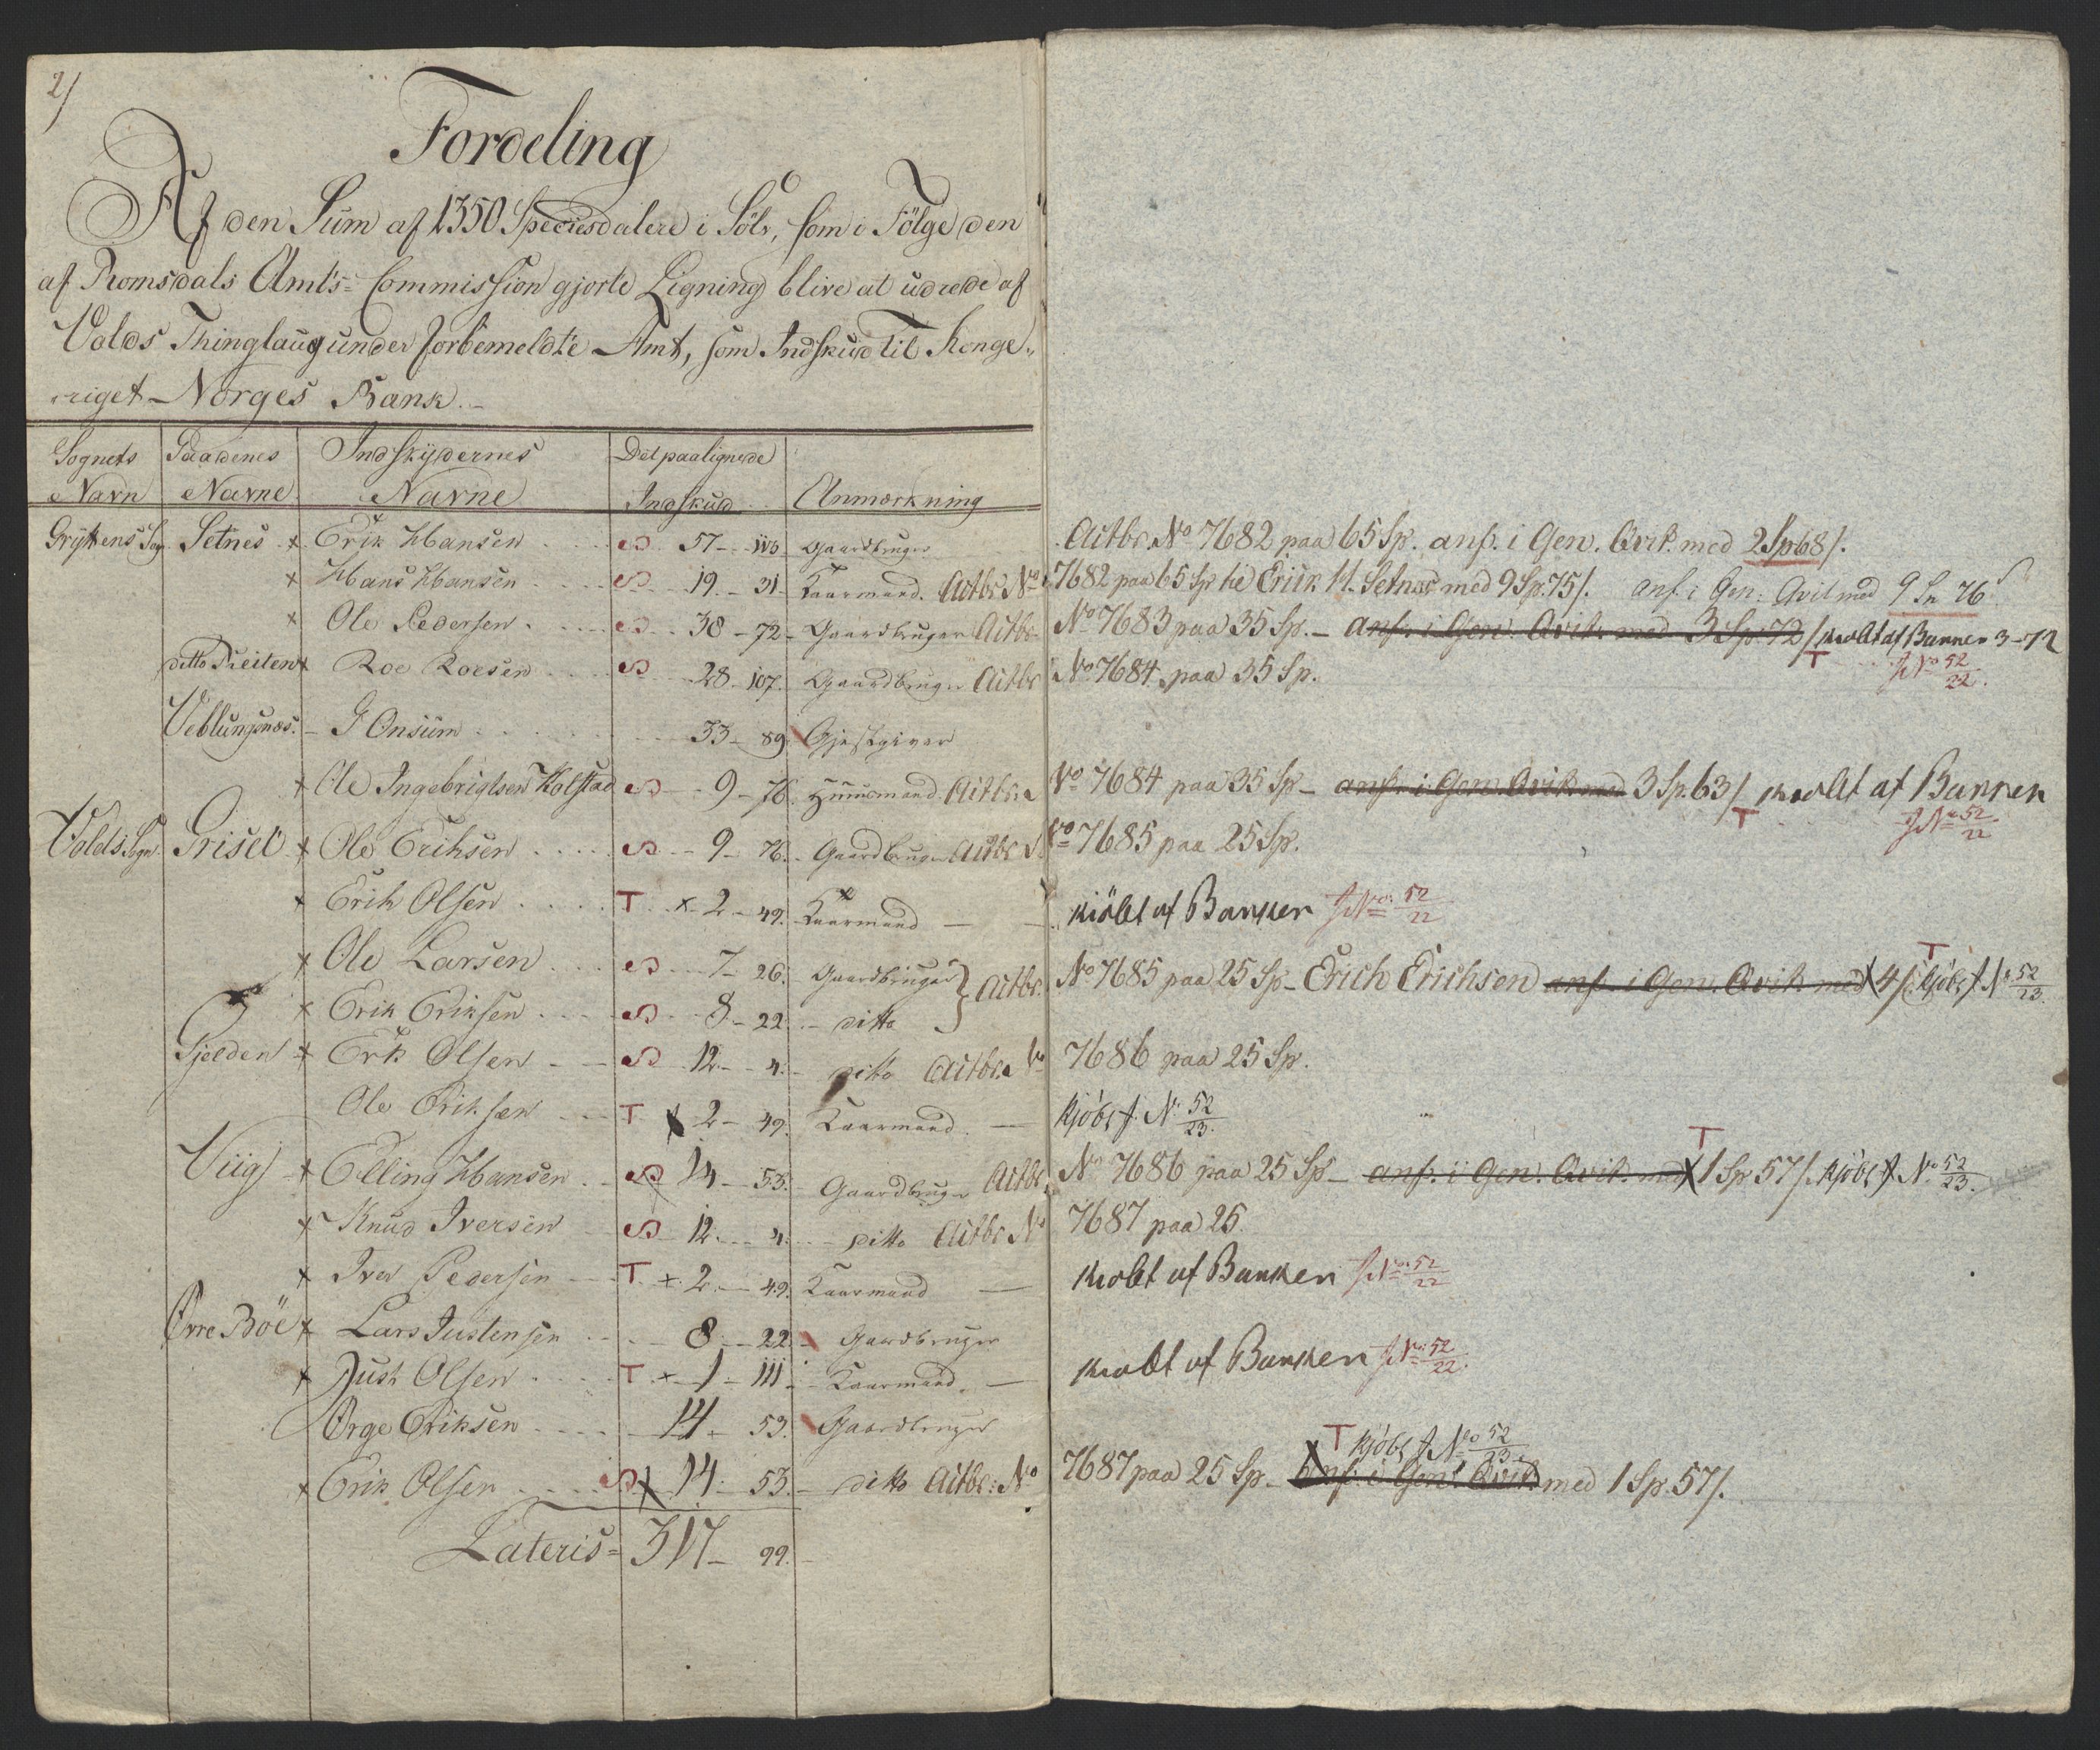 2/
Fordeling
Af den Sum af 1350 Speciesdalere i Sölv, som i Fölge den
af Romsdals Amts-Commission gjorte Ligning blive at udrede af
Volds Thinglaug under forbemeldte Amt, som Indskud til Konge-
riget Norges Bank.
Sognets Navn Gaardenes Navne Indskydernes Navne Det paalignede Indskud Anmærkning
Gryttens Sogn Setnes x Erik Hansen S 57 - Gaardbruger Actbr. No 7682 paa 65 Sp. anf. i Gen. Qvit. med 2 Sp 68/.
x Hans Hansen S 19 - 31 Kaarmand. Actbr. No 7682 paa 65 Sp til Erick H. Setnæs med 9 Sp. 75/. anf. i Gen. Qvit med 9 Sp 76
x Ole Pedersen S 38 - 72 Gaardbruger Actbr. No 7683 paa 35 Sp. - anf. i Gen. Qvit. med 3 Sp 72/ kiøbt af Banken 3-72
ditto Reiten x Roe Roesen S 28 - 107 Gaardbruger Actbr No 7684 paa 35 Sp. T f No 52/22.
Veblungsnæs - G Onsüm 33 - 89 Gjestgiver
x Ole Ingebrigtsen Kolstad S 9 - 76 Huusmand. Actbr. No 7684 paa 35 Sp - anf. i Gen. Qvit med 3 Sp. 63/ kiøbt af Banken
T f No 52/22
Volds Sogn Griset x Ole Eriksen S 9 - 76 Gaardbruger Actbr No 7685 paa 25 Sp.
x Erik Olsen T x 2 - 49 Kaarmand - kiöbt af Banken f No 52/22
x Ole Larsen S 7 - 26 Gaardbruger } Actbr. No 7685 paa 25 Sp - Erich Erichsen anf. i Gen. Qvit med x 4/. T kjöbt f. No 52/23.
x Erik Eriksen S 8 - 22 ditto
Gjelden x Erk Olsen S 12 - 4 ditto Actbr. No 7686 paa 25 Sp.
Ole Eriksen T x 2 - 49 Kaarmand - kjöbt f. N. 52/23.
Viig x Elling Hansen S 14 - 53 Gaardbruger Actbr. No 7686 paa 25 Sp - anf. i Gen. Qvit. med x T 1 Sp 57/. kjöbt f No 52/23.
x Knud Iversen S 12 - 4 ditto Actbr No 7687 paa 25
x Iver Pedersen T x 2 - 49 Kaarmand - kiobt af Banken f No 52/22
Øvre Böe x Lars Justensen 8 - 22 Gaardbruger
x Just Olsen T x 1 - 111 Kaarmand. - kiobt af Banken f No 52/22.
Ørge Eriksen 14 - 53 Gaardbruger
T kjöbt f No 52/23
x Erik Olsen S x 14 - 53 ditto Actbr: No 7687 paa 25 Sp - x anf. i Gen. Qvit. med 1 Sp. 57/.
Lateris = 317 - 99.